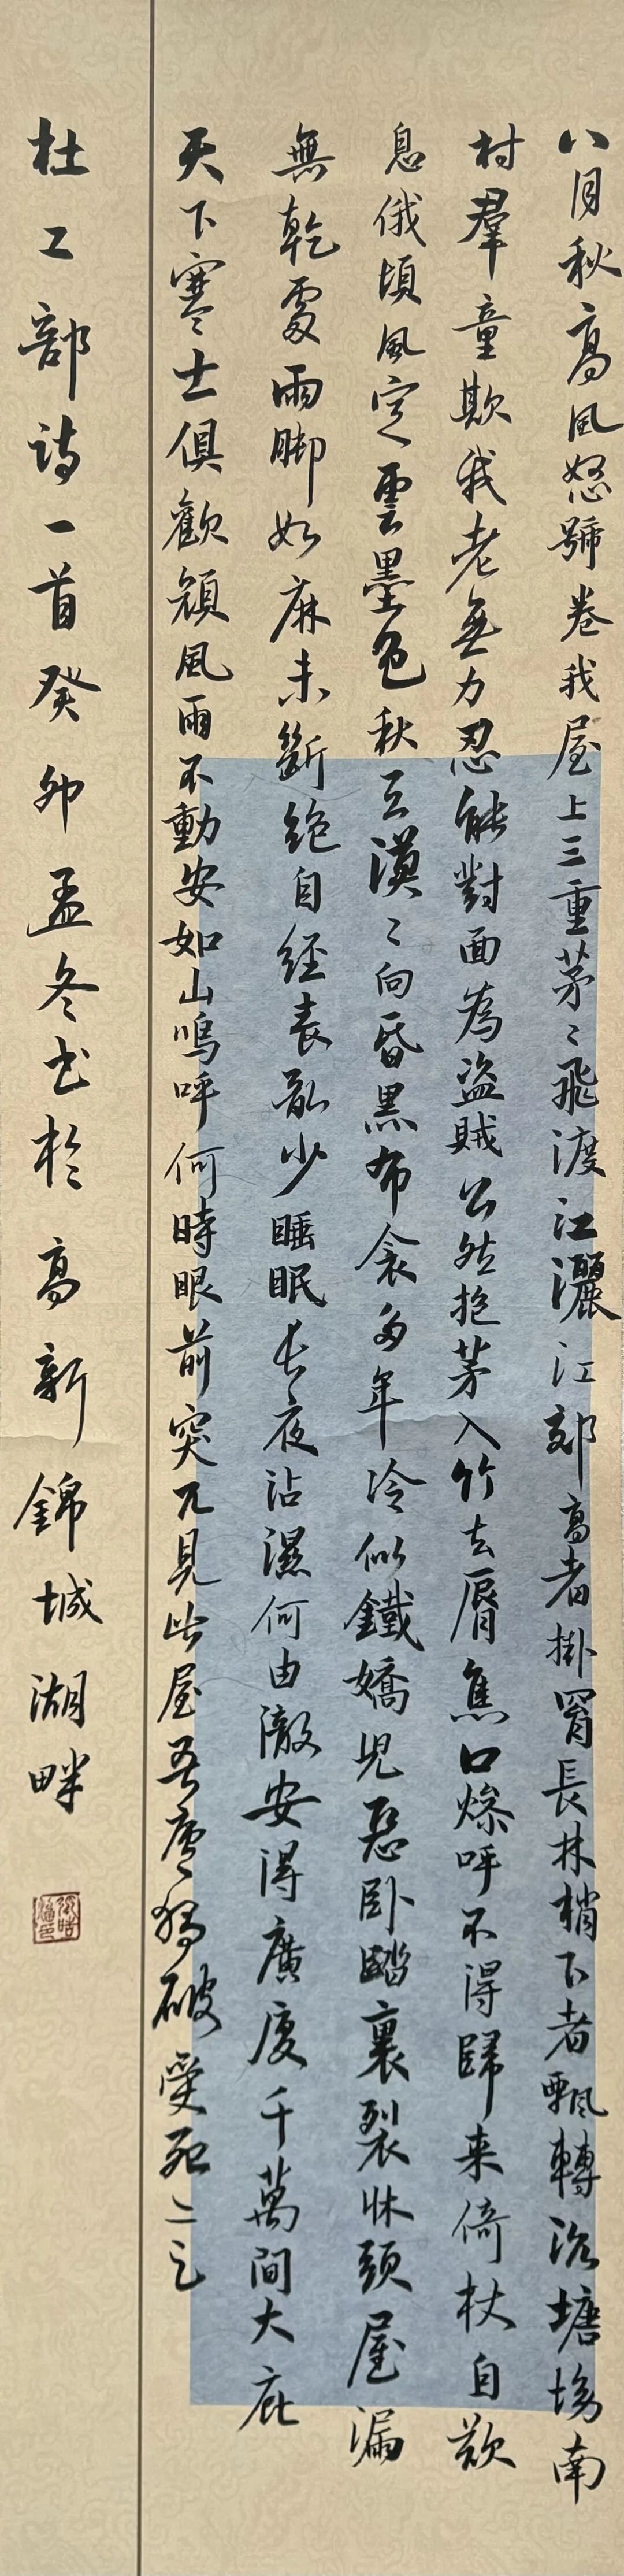 八月秋高風怒號卷我屋上三重茅〻飛渡江灑江郊高者掛罥長林梢下者飄轉沉塘坳南
村羣童欺我老無力忍能對面為盜賊公然抱茅入竹去脣焦口燥呼不得歸来倚杖自歎
息俄頃風定雲墨色秋天漠〻向昏黑布衾多年冷似鐵嬌兒惡卧踏裏裂牀頭屋漏
無乾處雨脚如麻未斷絶自經喪亂少睡眠長夜沾濕何由徹安得廣廈千萬間大庇
天下寒士俱歡顔風雨不動安如山嗚呼何時眼前突兀見此屋吾廬獨破受死亦足
杜工部詩一首癸卯孟冬书於高新錦城湖畔